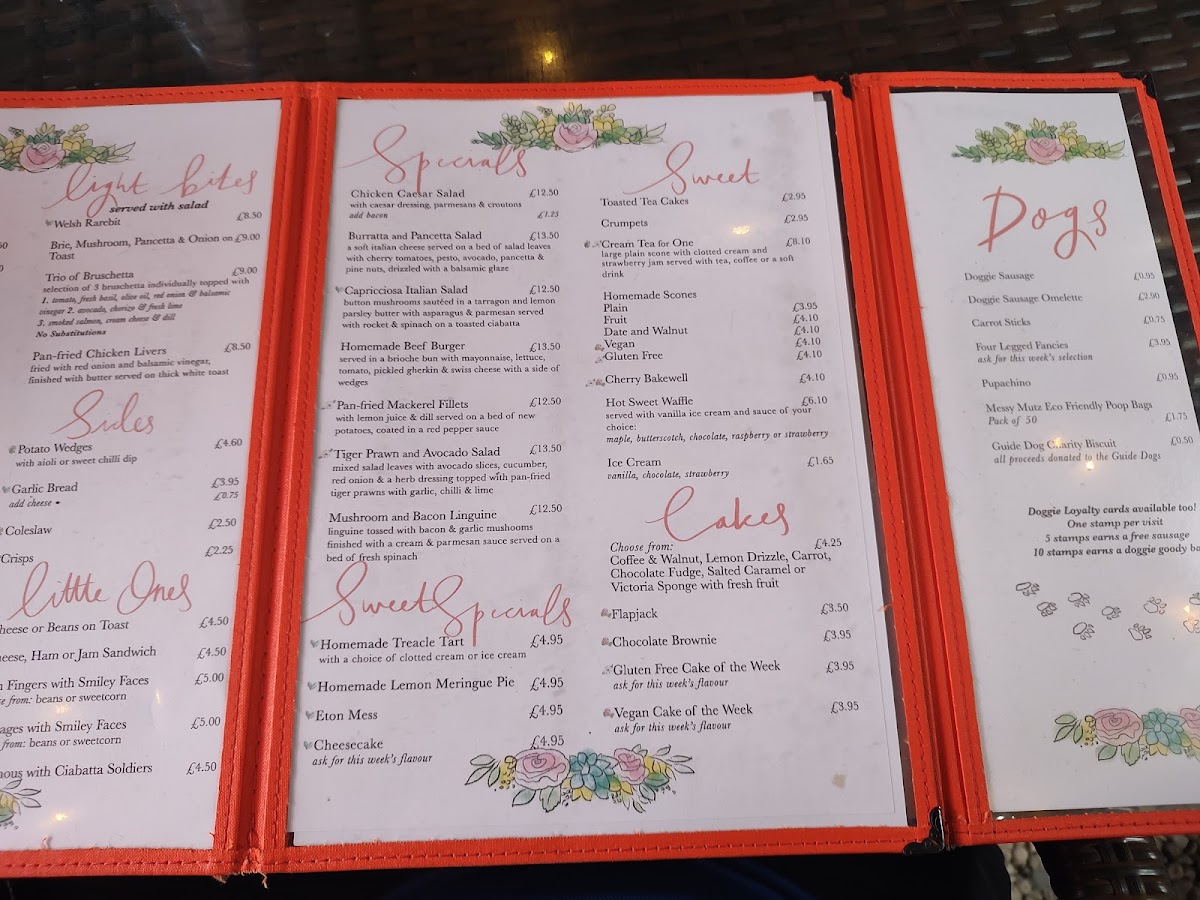 light bites
served with salad
Welsh Rarebit £8.50
Brie, Mushroom, Pancetta & Onion on £9.00
Toast
Trio of Bruschetta £9.00
selection of 3 bruschetta individually topped with
1. tomato, fresh basil, olive oil, red onion & balsamic
vinegar 2. avocado, chorizo & fresh lime
3. smoked salmon, cream cheese & dill
No Substitutions
Pan-fried Chicken Livers £8.50
fried with red onion and balsamic vinegar,
finished with butter served on thick white toast
Sides
Potato Wedges £4.60
with aioli or sweet chilli dip
Garlic Bread £3.95
add cheese • £0.75
Coleslaw £2.50
Crisps £2.25
little Ones
heese or Beans on Toast £4.50
eese, Ham or Jam Sandwich £4.50
Fingers with Smiley Faces £5.00
from: beans or sweetcorn
ages with Smiley Faces £5.00
from: beans or sweetcorn
ous with Ciabatta Soldiers £4.50
Specials
Chicken Caesar Salad £12.50
with caesar dressing, parmesans & croutons
add bacon £1.25
Burratta and Pancetta Salad £13.50
a soft italian cheese served on a bed of salad leaves
with cherry tomatoes, pesto, avocado, pancetta &
pine nuts, drizzled with a balsamic glaze
Capricciosa Italian Salad £12.50
button mushrooms sautéed in a tarragon and lemon
parsley butter with asparagus & parmesan served
with rocket & spinach on a toasted ciabatta
Homemade Beef Burger £13.50
served in a brioche bun with mayonnaise, lettuce,
tomato, pickled gherkin & swiss cheese with a side of
wedges
Pan-fried Mackerel Fillets £12.50
with lemon juice & dill served on a bed of new
potatoes, coated in a red pepper sauce
Tiger Prawn and Avocado Salad £13.50
mixed salad leaves with avocado slices, cucumber,
red onion & a herb dressing topped with pan-fried
tiger prawns with garlic, chilli & lime
Mushroom and Bacon Linguine £12.50
linguine tossed with bacon & garlic mushooms
finished with a cream & parmesan sauce served on a
bed of fresh spinach
Sweet Specials
Homemade Treacle Tart £4.95
with a choice of clotted cream or ice cream
Homemade Lemon Meringue Pie £4.95
Eton Mess £4.95
Cheesecake £4.95
ask for this week's flavour
Sweet
Toasted Tea Cakes £2.95
Crumpets £2.95
Cream Tea for One £8.10
large plain scone with clotted cream and
strawberry jam served with tea, coffee or a soft
drink
Homemade Scones
Plain £3.95
Fruit £4.10
Date and Walnut £4.10
Vegan £4.10
Gluten Free £4.10
Cherry Bakewell £4.10
Hot Sweet Waffle £6.10
served with vanilla ice cream and sauce of your
choice:
maple, butterscotch, chocolate, raspberry or strawberry
Ice Cream £1.65
vanilla, chocolate, strawberry
Cakes
Choose from: £4.25
Coffee & Walnut, Lemon Drizzle, Carrot,
Chocolate Fudge, Salted Caramel or
Victoria Sponge with fresh fruit
Flapjack £3.50
Chocolate Brownie £3.95
Gluten Free Cake of the Week £3.95
ask for this week's flavour
Vegan Cake of the Week £3.95
ask for this week's flavour
Dogs
Doggie Sausage £0.95
Doggie Sausage Omelette £2.90
Carrot Sticks £0.75
Four Legged Fancies £3.95
ask for this week's selection
Pupachino £0.95
Messy Mutz Eco Friendly Poop Bags
Pack of 50 £1.75
Guide Dog Charity Biscuit £0.50
all proceeds donated to the Guide Dogs
Doggie Loyalty cards available too!
One stamp per visit
5 stamps earns a free sausage
10 stamps earns a doggie goody ba